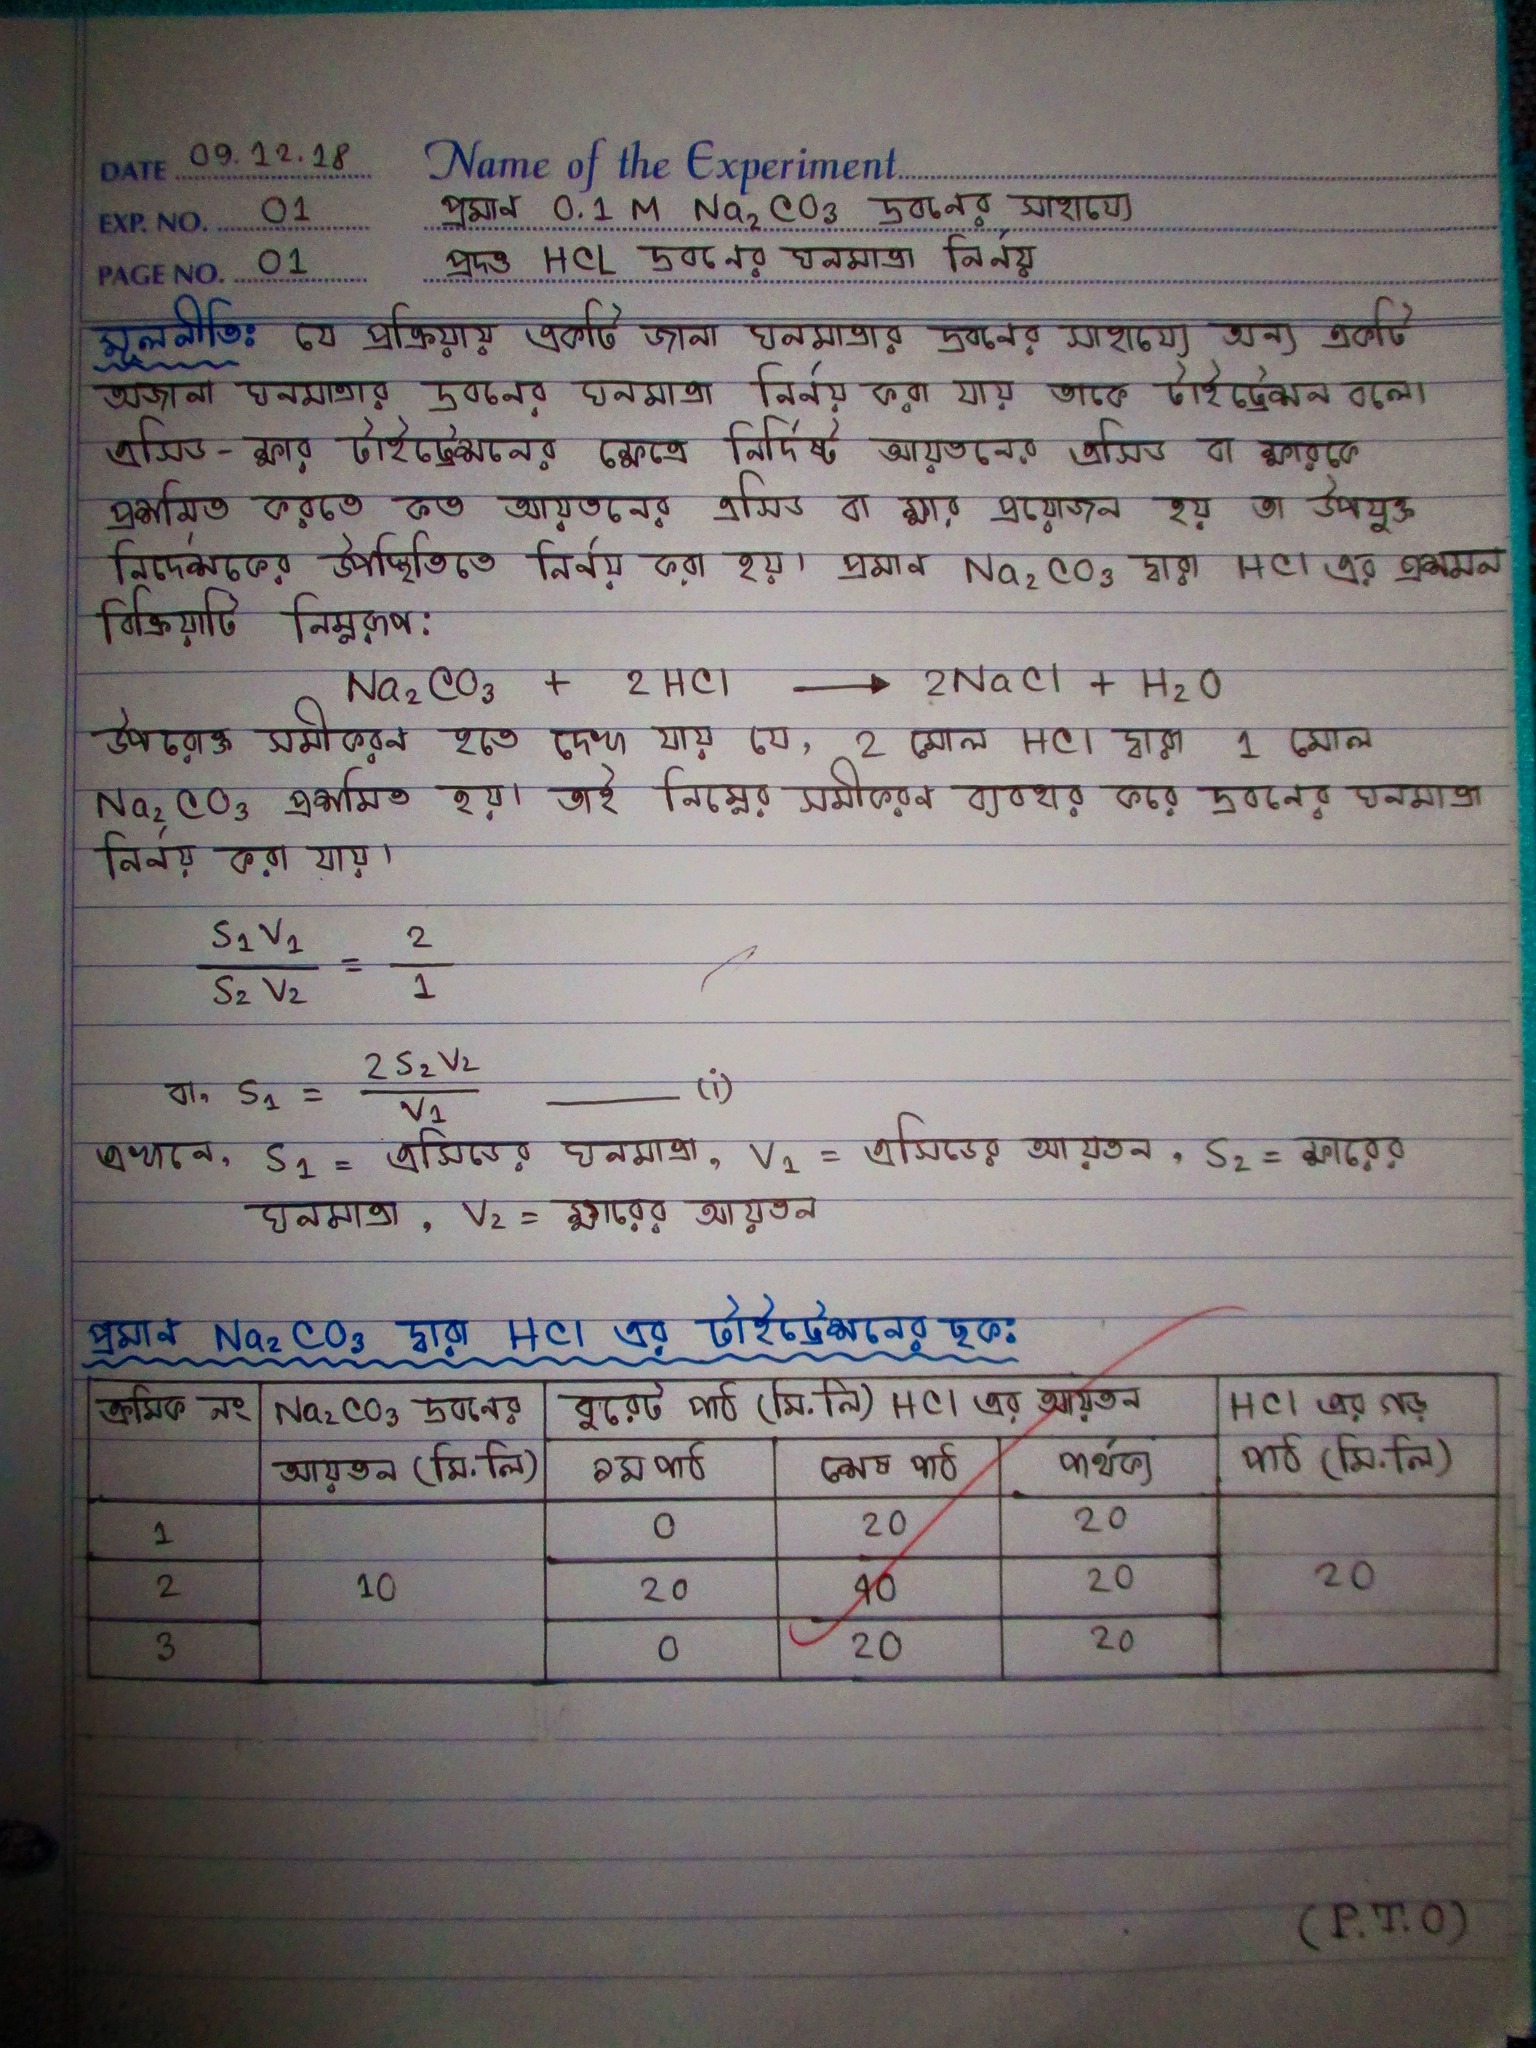 DATE 09.12.18 Name of the Experiment
EXP. NO. 01 প্রমান 0.1 M Na₂CO₃ দ্রবনের সাহায্যে
PAGE NO. 01 প্রদত্ত HCL দ্রবনের ঘনমাত্রা নির্নয়
মূলনীতিঃ যে প্রক্রিয়ায় একটি জানা ঘনমাত্রার দ্রবনের সাহায্যে অন্য একটি
অজানা ঘনমাত্রার দ্রবনের ঘনমাত্রা নির্নয় করা যায় তাকে টাইট্রেশন বলে।
এসিড - ক্ষার টাইট্রেশনের ক্ষেত্রে নির্দিষ্ট আয়তনের এসিড বা ক্ষারকে
প্রশমিত করতে কত আয়তনের এসিড বা ক্ষার প্রয়োজন হয় তা উপযুক্ত
নির্দেশকের উপস্থিতিতে নির্নয় করা হয়। প্রমান Na₂CO₃ দ্বারা HCl এর প্রশমন
বিক্রিয়াটি নিম্নরূপ:
Na₂CO₃ + 2HCl ⟶ 2NaCl + H₂O
উপরোক্ত সমীকরন হতে দেখা যায় যে, 2 মোল HCl দ্বারা 1 মোল
Na₂CO₃ প্রশমিত হয়। তাই নিম্নের সমীকরন ব্যবহার করে দ্রবনের ঘনমাত্রা
নির্নয় করা যায়।
S₁V₁ / S₂V₂ = 2 / 1
বা, S₁ = 2S₂V₂ / V₁ ——— (i)
এখানে, S₁ = এসিডের ঘনমাত্রা, V₁ = এসিডের আয়তন, S₂ = ক্ষারের
ঘনমাত্রা, V₂ = ক্ষারের আয়তন
প্রমান Na₂CO₃ দ্বারা HCl এর টাইট্রেশনের ছক:
ক্রমিক নং Na₂CO₃ দ্রবনের বুরেট পাঠ (মি.লি) HCl এর আয়তন HCl এর গড়
আয়তন (মি.লি) ১ম পাঠ শেষ পাঠ পার্থক্য পাঠ (মি.লি)
1 0 20 20
2 10 20 40 20 20
3 0 20 20
(P.T.O)